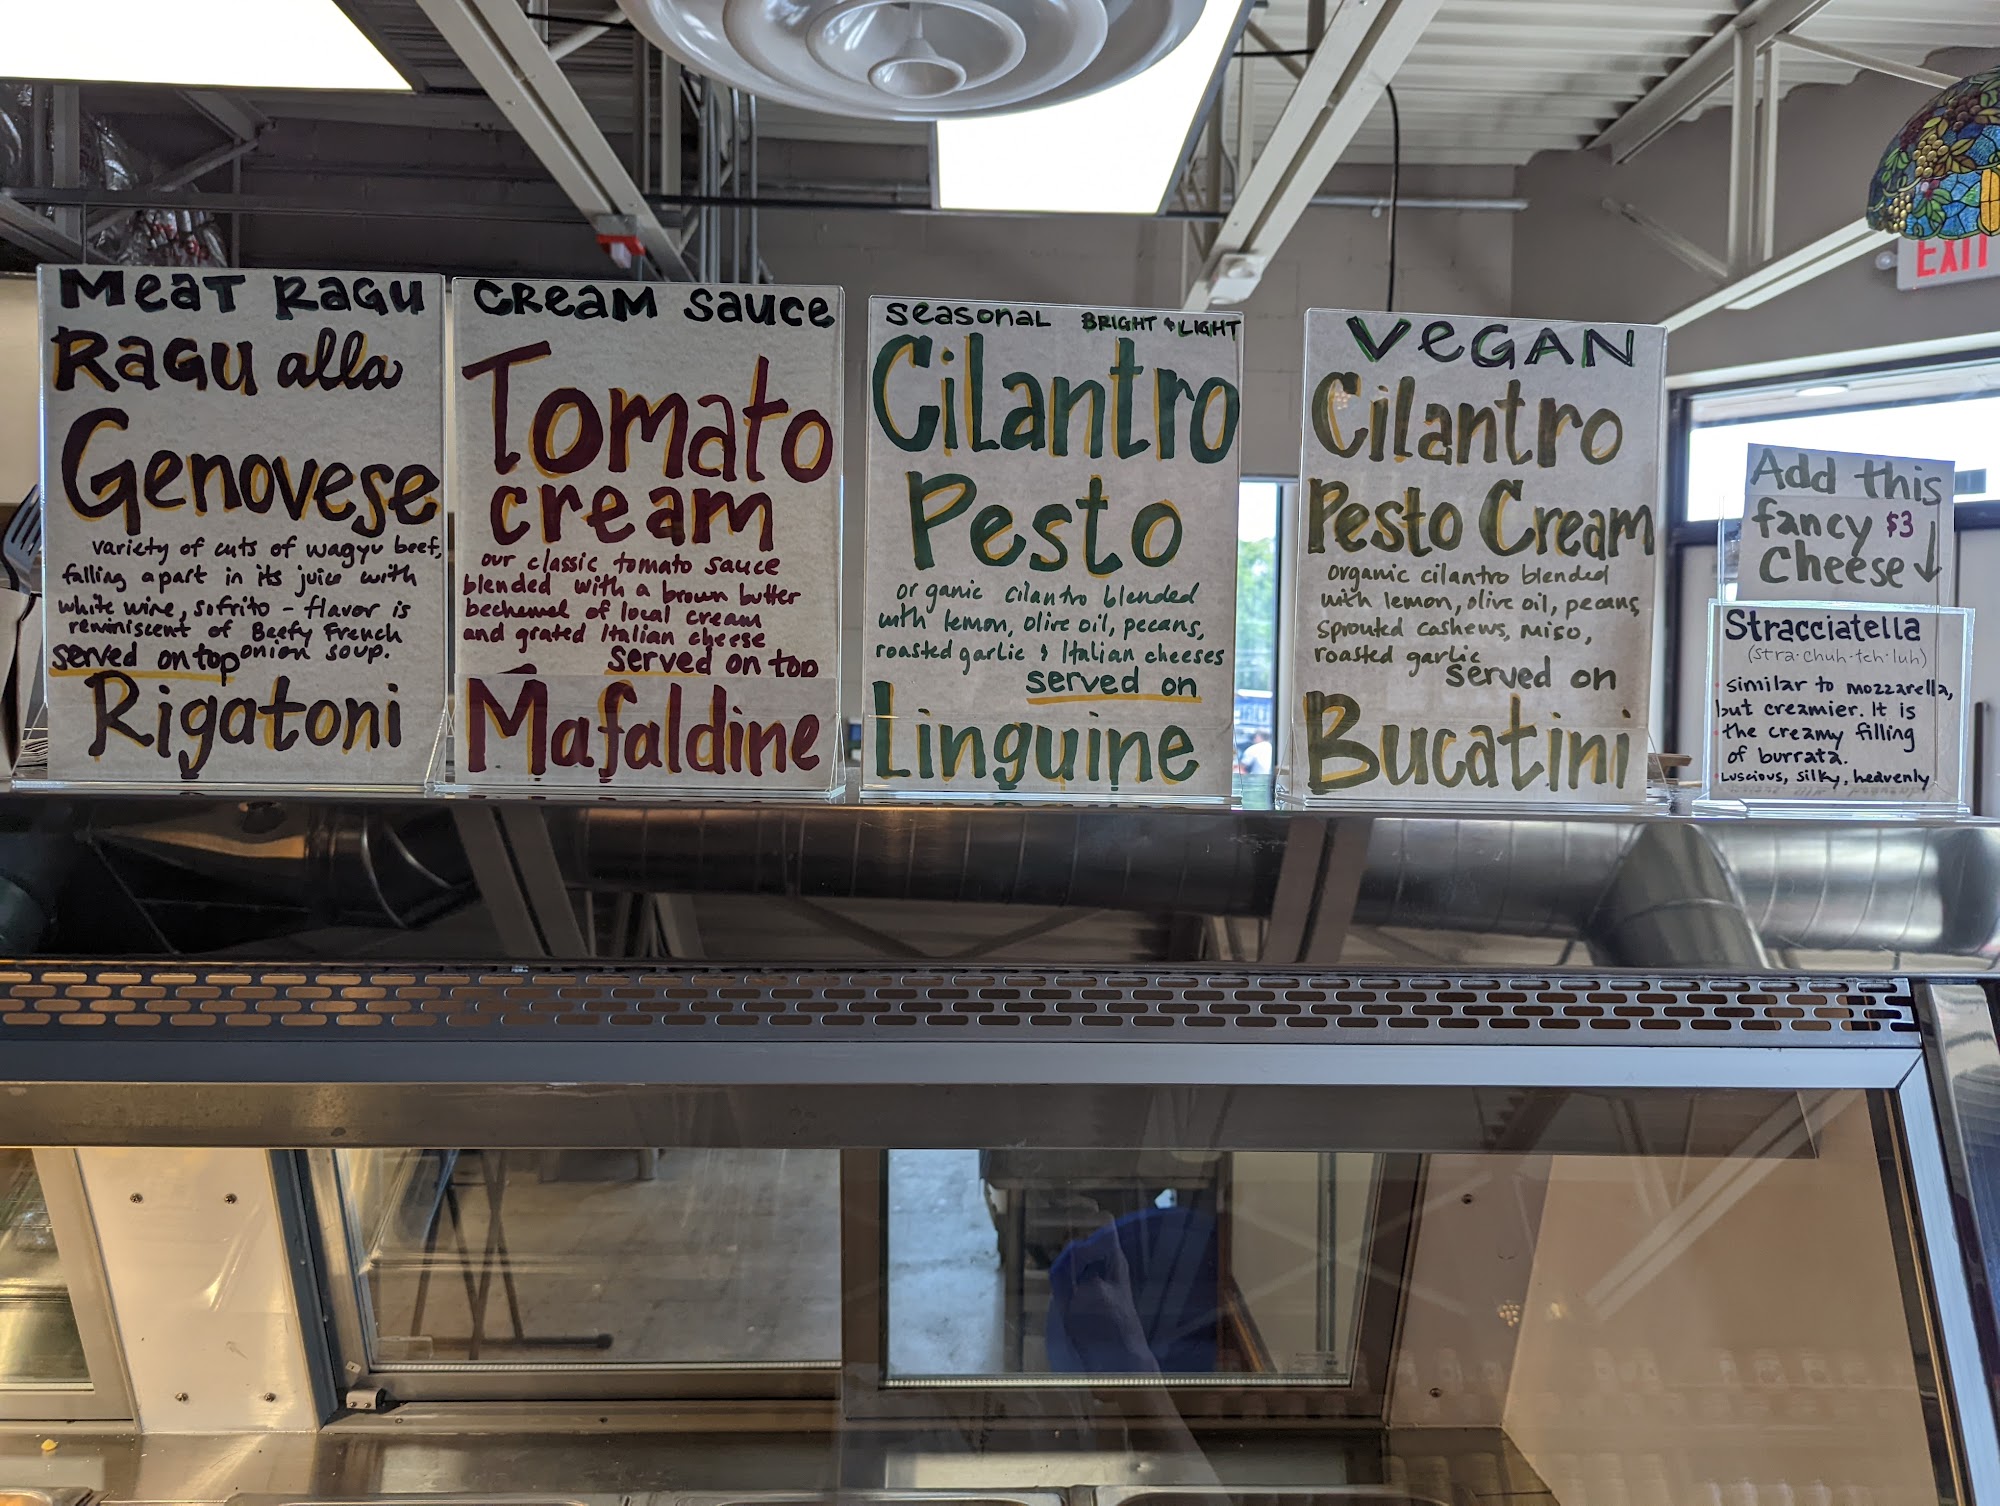 MEAT RAGU
RAGU alla
Genovese
variety of cuts of wagyu beef,
falling apart in its juice with
white wine, sofrito - flavor is
reminiscent of Beefy French
onion soup.
served on top
Rigatoni
CREAM SAUCE
Tomato
cream
our classic tomato sauce
blended with a brown butter
bechemel of local cream
and grated Italian cheese
served on top
Mafaldine
Seasonal BRIGHT & LIGHT
Cilantro
Pesto
organic cilantro blended
with lemon, olive oil, pecans,
roasted garlic & Italian cheeses
served on
Linguine
VEGAN
Cilantro
Pesto Cream
organic cilantro blended
with lemon, olive oil, pecans,
sprouted cashews, miso,
roasted garlic
served on
Bucatini
Add this
fancy $3
cheese
Stracciatella
(stra·chuh·teh·luh)
similar to mozzarella,
but creamier. It is
the creamy filling
of burrata.
Luscious, silky, heavenly
EXIT